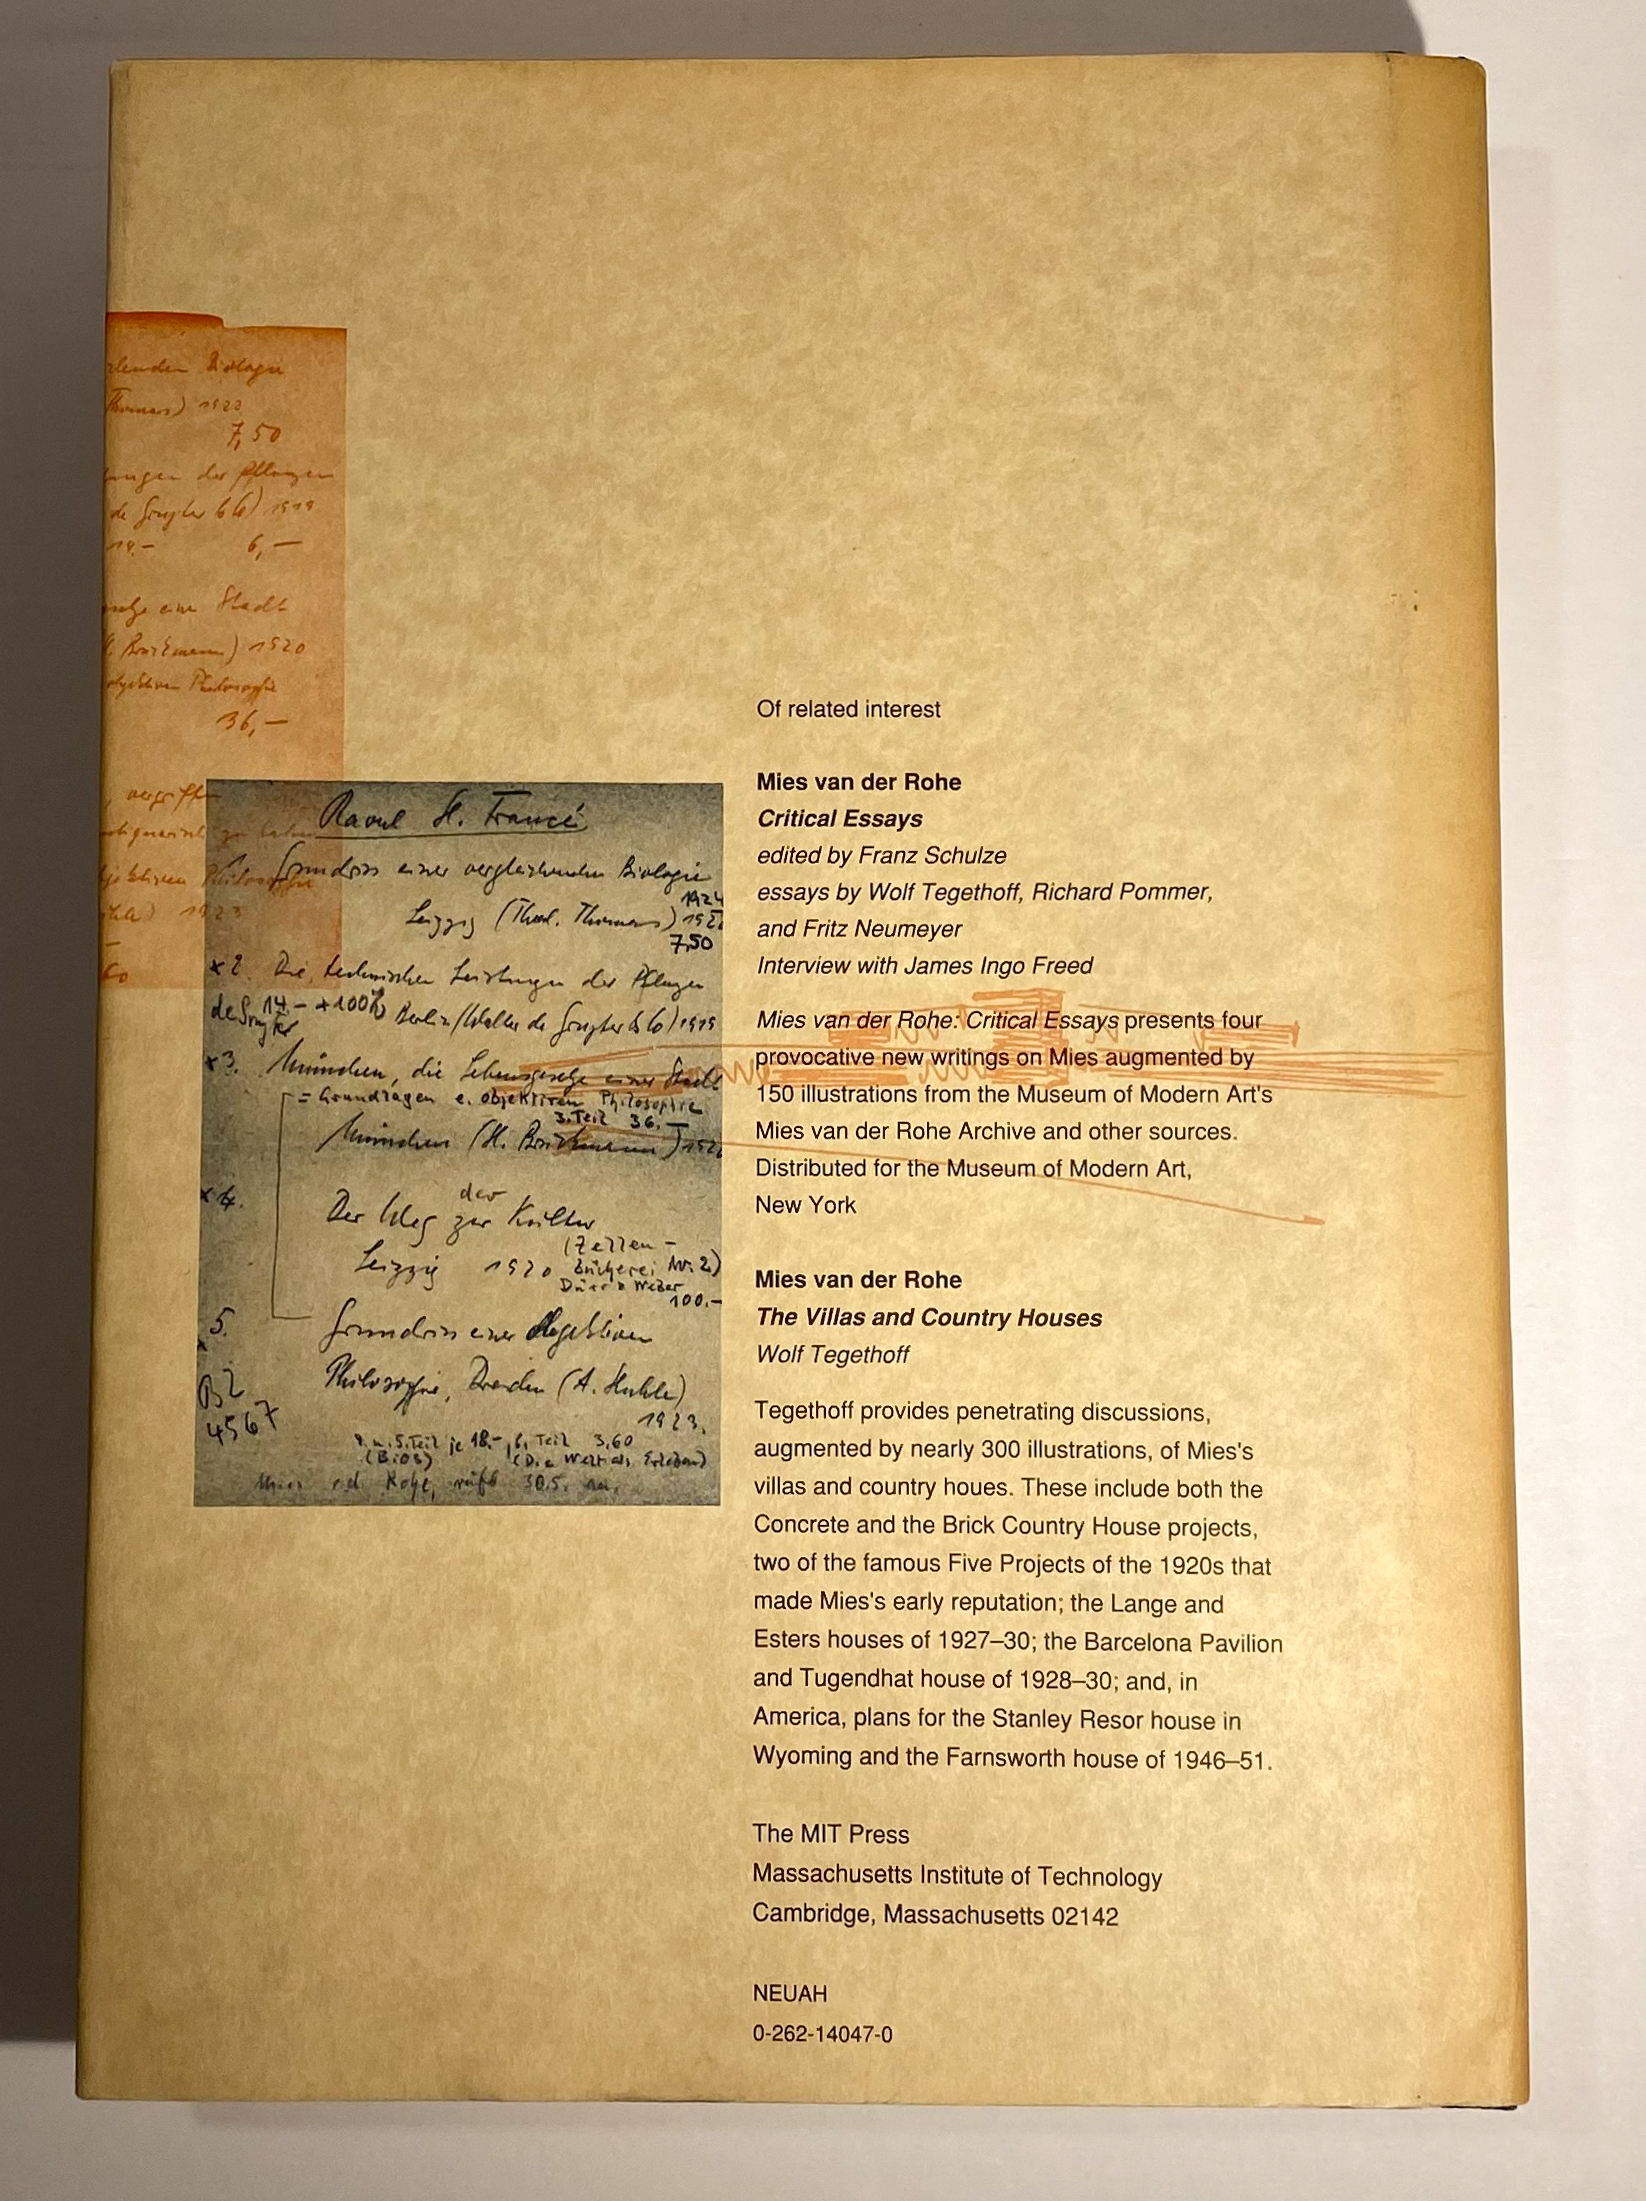 Biologie
Thomas) 1922
7,50
der Pflanzen
de Gruyter & Co) 1919
14.- 6,—
einer Stadt
Bruckmann) 1920
objektiven Philosophie
36,—
, vergriffen
antiquarisch zu haben
Philosophie
1923
60
Raoul H. Francé
1. Grundriss einer vergleichenden Biologie
1924
Leipzig (Theod. Thomas) 1922
7,50
x 2. Die technischen Leistungen der Pflanzen
14.- + 100%
de Gruyter Berlin (Walter de Gruyter & Co) 1919
x 3. München, die Lebensgesetze einer Stadt
= Grundlagen e. objektiven Philosophie
3. Teil 36.—
München (H. Bruckmann) 1920
x 4. Der Weg zur Kultur
der
Leipzig 1920 (Zellen-
bücherei Nr. 2)
Dürr & Weber
100.-
5. Grundriss einer objektiven
x
Philosophie, Dresden (A. Huhle)
B 2
4567
1923.
4. u. 5. Teil je 18.-, 6. Teil 3.60
(Bios) (Die Welt als Erleben)
Mies v.d. Rohe, 30.5.
Of related interest
Mies van der Rohe
Critical Essays
edited by Franz Schulze
essays by Wolf Tegethoff, Richard Pommer,
and Fritz Neumeyer
Interview with James Ingo Freed
Mies van der Rohe: Critical Essays presents four
provocative new writings on Mies augmented by
150 illustrations from the Museum of Modern Art's
Mies van der Rohe Archive and other sources.
Distributed for the Museum of Modern Art,
New York
Mies van der Rohe
The Villas and Country Houses
Wolf Tegethoff
Tegethoff provides penetrating discussions,
augmented by nearly 300 illustrations, of Mies's
villas and country houes. These include both the
Concrete and the Brick Country House projects,
two of the famous Five Projects of the 1920s that
made Mies's early reputation; the Lange and
Esters houses of 1927–30; the Barcelona Pavilion
and Tugendhat house of 1928–30; and, in
America, plans for the Stanley Resor house in
Wyoming and the Farnsworth house of 1946–51.
The MIT Press
Massachusetts Institute of Technology
Cambridge, Massachusetts 02142
NEUAH
0-262-14047-0